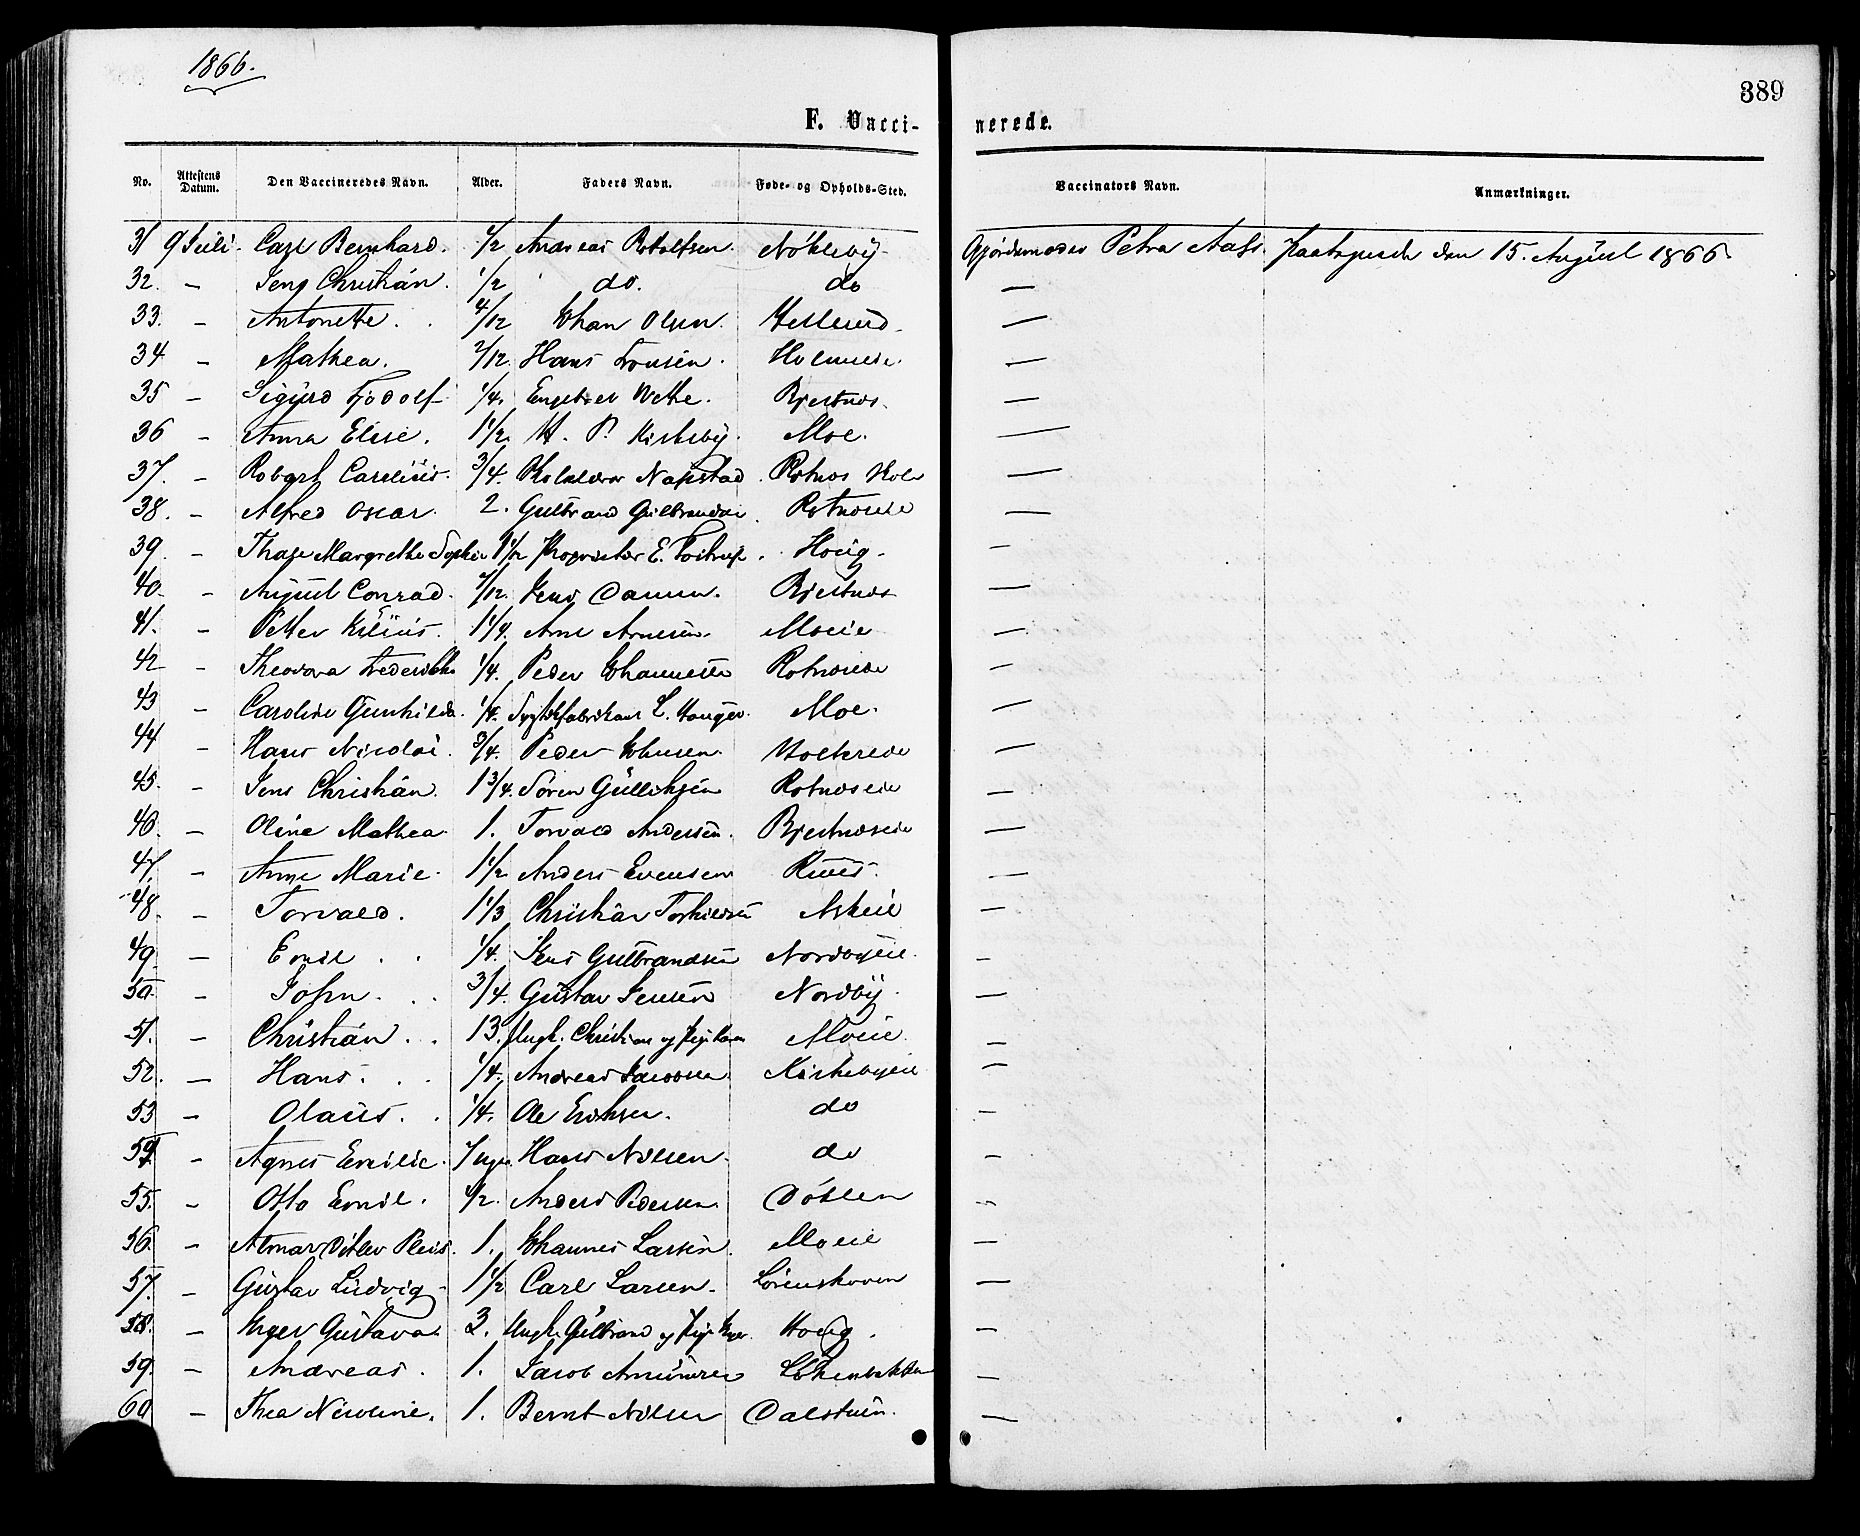 1866.
389
F. Vaccinerede.
No. Attestens Datum. Den Vaccineredes Navn. Alder. Faders Navn. Føde- og Opholds-Sted. Vaccinators Navn. Anmærkninger.
31 9 Juli. Carl Bernhard. 1/2 Andreas Nökleby Gjordemoder Petra Aass. den 15. August 1866
32. – Jens Christian. 1/2 do. do —
33. – Antonette. 4/12 Johan Olsen. —
34 – Mathea. 2/12 Hans —
35 – Sigurd 1/4. Bjertnæs. —
36 – Anna Elise. 1 1/2. H. P. Kirkeby. Moe. —
37. – Robert 3/4. Rotnæs —
38. – Alfred Oscar. 2. Gulbrand Gulbrandsen. Rotnæseie —
39. – Margrethe Sophie 1 1/12 Proprietær E. Houg. —
40. – August Conrad. 7/12. Jens Bjertnæs —
41. – Petter 1 1/4. Arne Arnesen. Moeie —
42 – Theodora Frederikke 1/4. Peder Johannesen Rotnæseie —
43 – Caroline Gunhilda. 1/4. L. Moe. —
44 – Hans Nicolai. 3/4. Peder Johnsen. —
45. – Jens Christian. 1 3/4. Sören Gulliksen Rotnæseie —
46. – Oline Mathea. 1. Torvald Andersen. Bjertnæseie —
47. – Anne Marie. 1 1/2 Anders Evensen —
48. – Torvald. 1 1/3 Christian Torkildsen Askeie —
49. – Emil . . 1/4. Jens Gulbrandsen Nordbyeie. —
50. – John. . . 3/4. Gustav Jensen Nordby. —
51. – Christian . . 13. Ungk. Christian og Pige Karen Moeie. —
52. – Hans. . . 1/4. Andreas Jacobsen Kirkebyeie —
53 – Olaus. . 1/4. Ole Eriksen. do —
54 – Agnes Emilie. Hans Nilsen. do —
55. – Otto Emil. 1/2. Anders Pedersen Döhlen —
56. – Ditlev 1. Johannes Larsen. Moeie —
57. – Gustav Ludvig – 1 1/2 Carl Larsen. Lörenskoven —
58. – Inger Gustava. 3. Ungk. Gulbrand og Pige Inger. Houg. —
59. – Andreas. 1. Jacob Amundsen —
60 – Thea Nicoline. 1. Bernt Nilsen Dalstuen. —